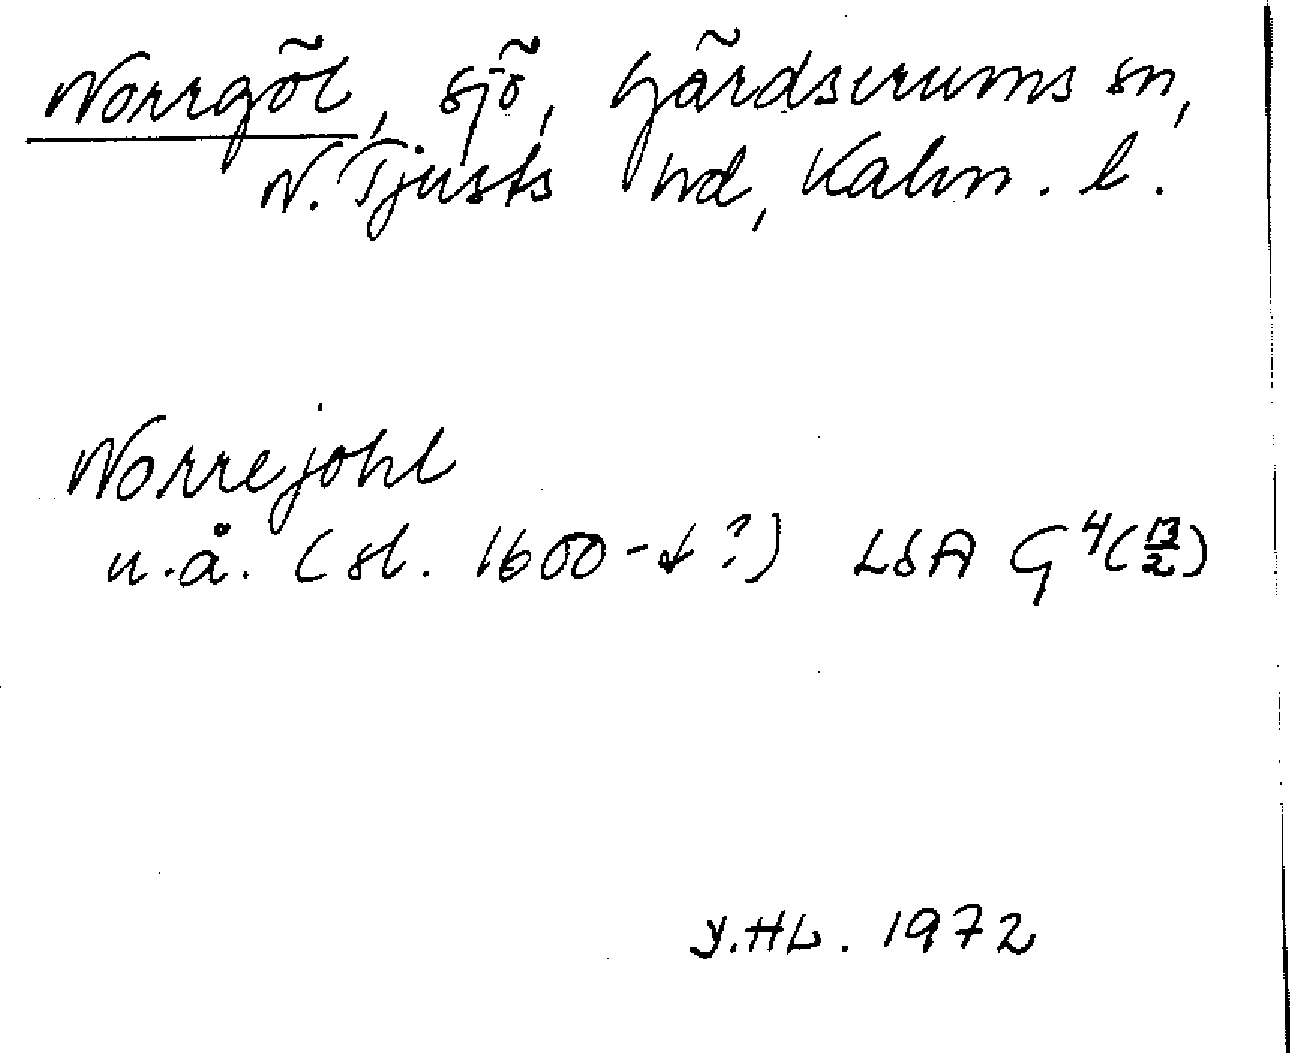 Norrgöl, sjö, Gärdserums sn,
N. Tjusts hd, Kalm. l.
Norrejohl
u.å. (sl. 1600-t ?) LSA G4 (13/2)
Y.HL. 1972